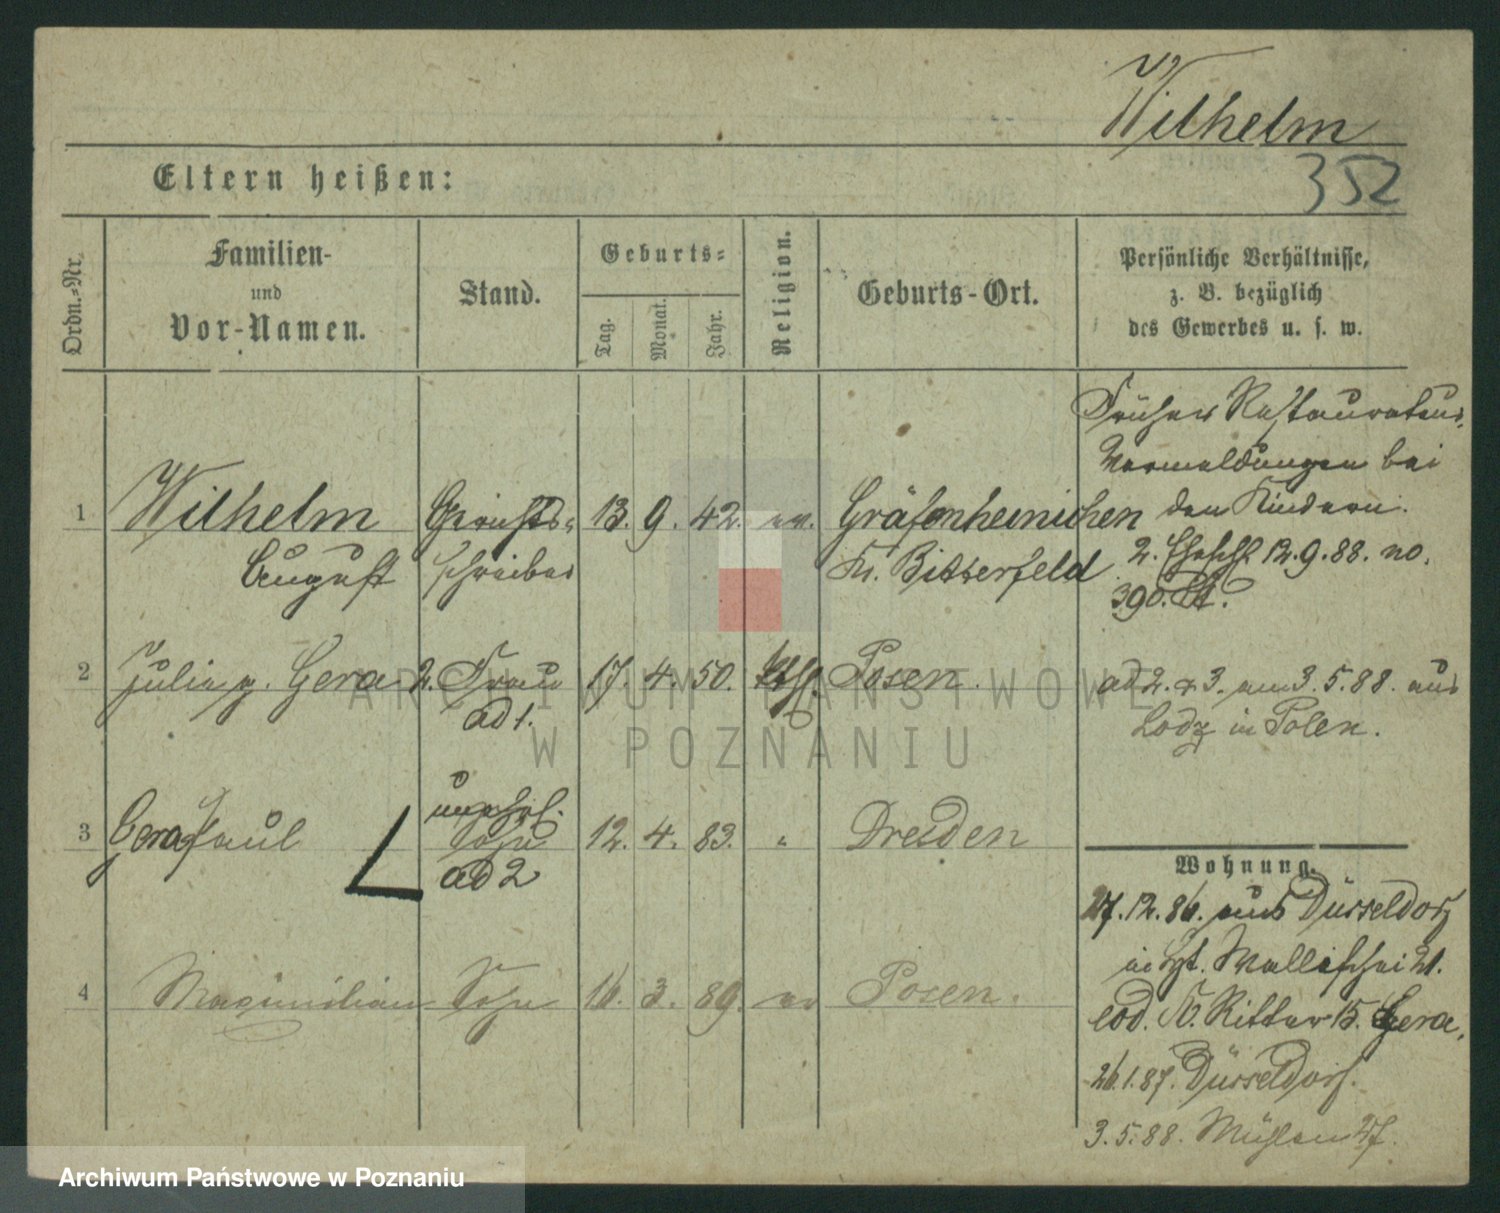 Wilhelm
352
Eltern heißen:
Ordn.-Nr.
Familien-
und
Vor-Namen.
Stand.
Geburts-
Tag.
Monat.
Jahr.
Religion.
Geburts-Ort.
Persönliche Verhältnisse,
z. B. bezüglich
des Gewerbes u. s. w.
Früher Restaurateur,
Vermeldungen bei
den Kindern.
1 Wilhelm Gerichts- 13. 9. 42. ev. Gräfenheinichen
August schreiber Kr. Bitterfeld
2. Ehesch. 12.9.88. no.
390. St.
2 Julie g. Gera 2. Frau 17. 4. 50. kth. Posen.
ad 1.
ad 2. & 3. am 3.5.88. aus
Lodz in Polen.
3 Gera Paul unehel. Sohn ad 2 12. 4. 83. " Dresden
4 Maximilian Sohn 16. 3. 89. ev Posen.
Wohnung.
27.12.86. aus Düsseldorf
Wallischei 21.
eod. Kl. Ritter 15. Gera.
26.1.87. Düsseldorf.
3.5.88. Mühlen 27.
ARCHIWUM PAŃSTWOWE
W POZNANIU
Archiwum Państwowe w Poznaniu